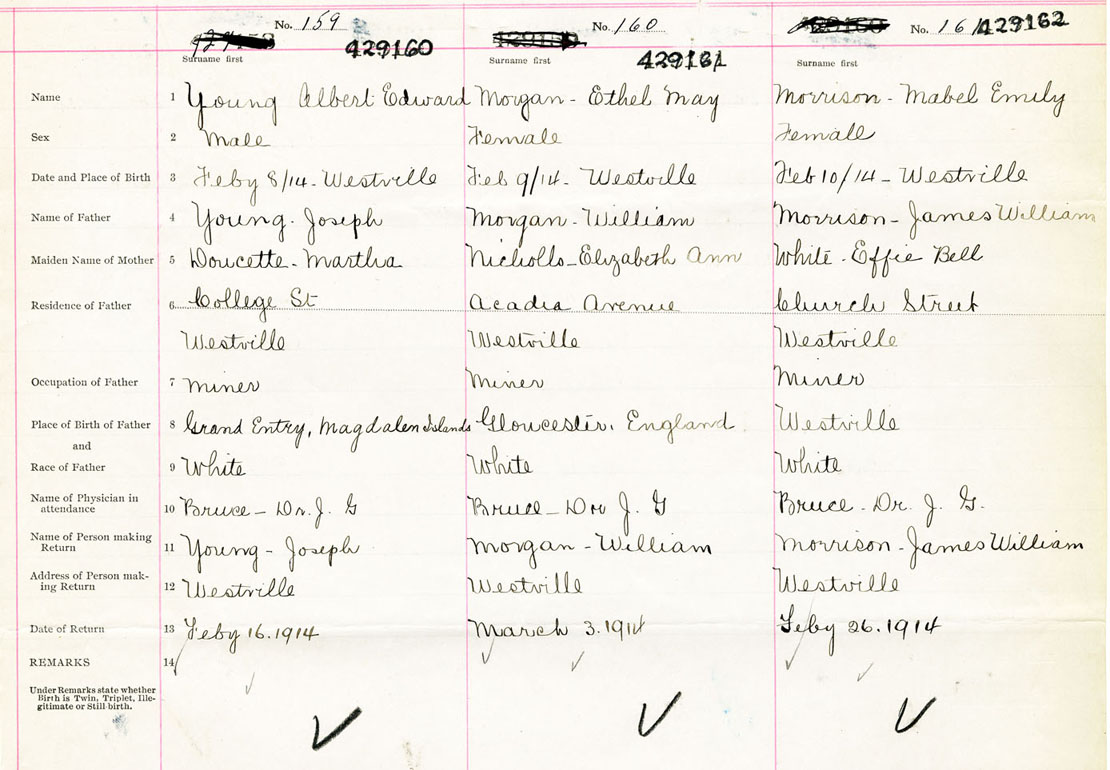 No. 159 No. 160 No. 161
429160 429161 429162
Surname first Surname first Surname first
Name 1 Young Albert Edward Morgan - Ethel May Morrison - Mabel Emily
Sex 2 Male Female Female
Date and Place of Birth 3 Feby 8/14 - Westville Feb 9/14 - Westville Feb 10/14 - Westville
Name of Father 4 Young - Joseph Morgan - William Morrison - James William
Maiden Name of Mother 5 Doucette - Martha Nicholls - Elizabeth Ann White - Effie Bell
Residence of Father 6 College St Acadia Avenue Church Street
Westville Westville Westville
Occupation of Father 7 Miner Miner Miner
Place of Birth of Father 8 Grand Entry, Magdalen Islands Gloucester, England Westville
and
Race of Father 9 White White White
Name of Physician in
attendance 10 Bruce - Dr. J. G Bruce - Dr J. G Bruce - Dr. J. G.
Name of Person making
Return 11 Young - Joseph Morgan - William Morrison - James William
Address of Person mak-
ing Return 12 Westville Westville Westville
Date of Return 13 Feby 16. 1914 March 3. 1914 Feby 26. 1914
REMARKS 14
Under Remarks state whether
Birth is Twin, Triplet, Ille-
gitimate or Still-birth.